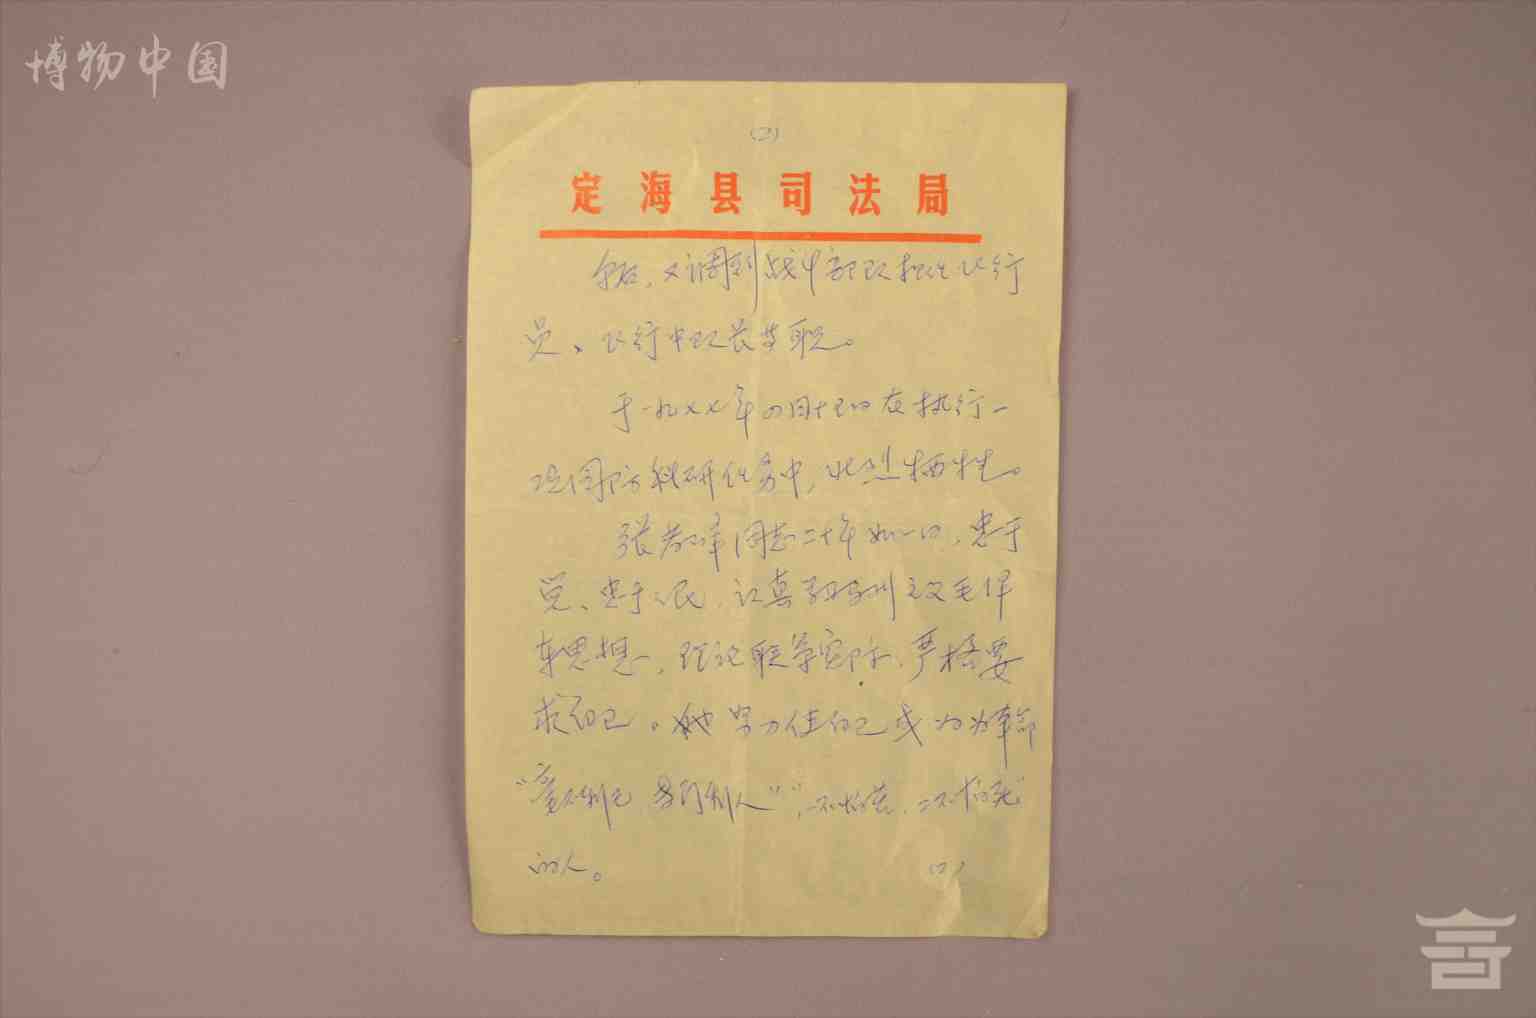 博物中国
(2)
定海县司法局
年后，又调到战斗部队担任飞行
员、飞行中队长等职。
于一九七七年四月十四日在执行一
项国防科研任务中，壮烈牺牲。
张 同志二十年如一日，忠于
党、忠于人民，认真 马列主义毛泽
东思想，理论联系实际，严格要
求自己。他努力使自己成为为革命
“毫不利己 专门利人”，“一不怕苦，二不怕死”
的人。
(2)